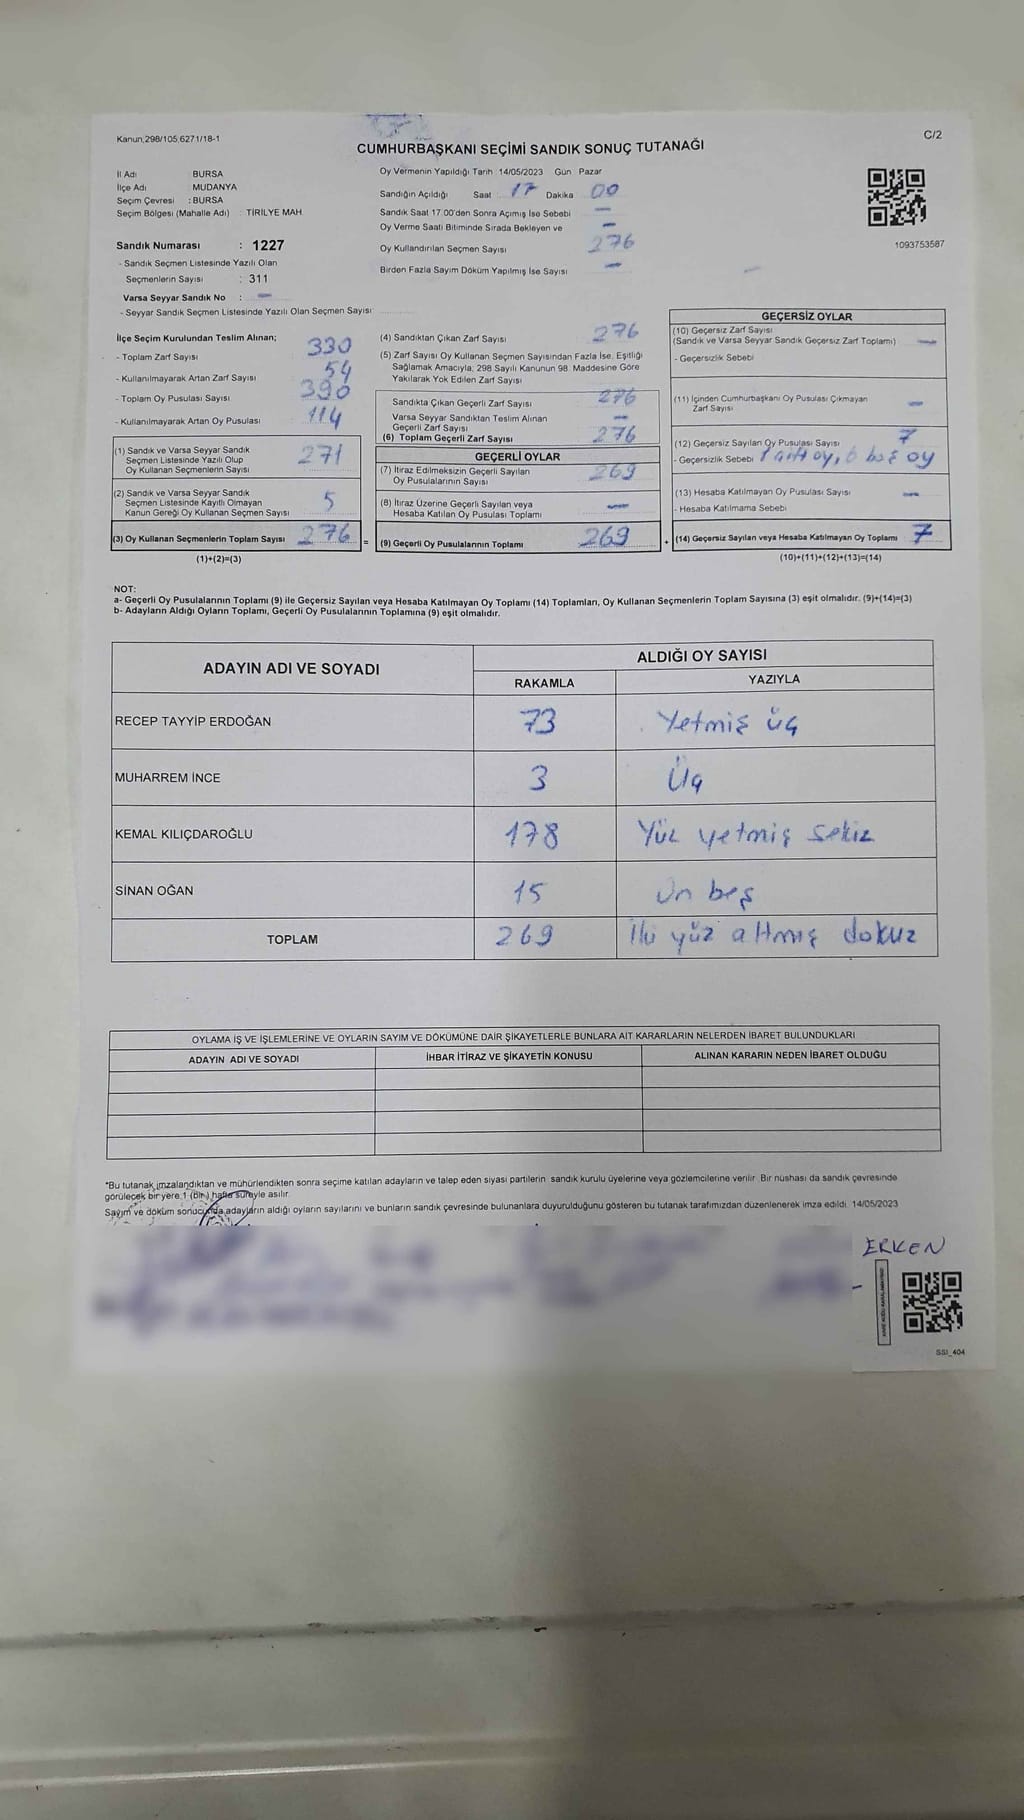 Kanun;298/105;6271/18-1
C/2
CUMHURBAŞKANI SEÇİMİ SANDIK SONUÇ TUTANAĞI
İl Adı BURSA
İlçe Adı MUDANYA
Seçim Çevresi : BURSA
Seçim Bölgesi (Mahalle Adı) : TİRİLYE MAH.
Sandık Numarası : 1227
- Sandık Seçmen Listesinde Yazılı Olan
Seçmenlerin Sayısı : 311
Varsa Seyyar Sandık No : —
- Seyyar Sandık Seçmen Listesinde Yazılı Olan Seçmen Sayısı
Oy Vermenin Yapıldığı Tarih 14/05/2023 Gün Pazar
Sandığın Açıldığı Saat 17 Dakika 00
Sandık Saat 17.00'den Sonra Açımış İse Sebebi —
Oy Verme Saati Bitiminde Sırada Bekleyen ve —
Oy Kullandırılan Seçmen Sayısı 276
Birden Fazla Sayım Döküm Yapılmış İse Sayısı —
1093753587
İlçe Seçim Kurulundan Teslim Alınan;
- Toplam Zarf Sayısı 330
- Kullanılmayarak Artan Zarf Sayısı 54
- Toplam Oy Pusulası Sayısı 390
- Kullanılmayarak Artan Oy Pusulası 114
(1) Sandık ve Varsa Seyyar Sandık
Seçmen Listesinde Yazılı Olup
Oy Kullanan Seçmenlerin Sayısı 271
(2) Sandık ve Varsa Seyyar Sandık
Seçmen Listesinde Kayıtlı Olmayan
Kanun Gereği Oy Kullanan Seçmen Sayısı 5
(3) Oy Kullanan Seçmenlerin Toplam Sayısı 276 =
(1)+(2)=(3)
(4) Sandıktan Çıkan Zarf Sayısı 276
(5) Zarf Sayısı Oy Kullanan Seçmen Sayısından Fazla İse, Eşitliği
Sağlamak Amacıyla; 298 Sayılı Kanunun 98. Maddesine Göre
Yakılarak Yok Edilen Zarf Sayısı
Sandıkta Çıkan Geçerli Zarf Sayısı 276
Varsa Seyyar Sandıktan Teslim Alınan
Geçerli Zarf Sayısı —
(6) Toplam Geçerli Zarf Sayısı 276
GEÇERLİ OYLAR
(7) İtiraz Edilmeksizin Geçerli Sayılan
Oy Pusulalarının Sayısı 269
(8) İtiraz Üzerine Geçerli Sayılan veya
Hesaba Katılan Oy Pusulası Toplamı —
(9) Geçerli Oy Pusulalarının Toplamı 269 +
GEÇERSİZ OYLAR
(10) Geçersiz Zarf Sayısı
(Sandık ve Varsa Seyyar Sandık Geçersiz Zarf Toplamı) —
- Geçersizlik Sebebi
(11) İçinden Cumhurbaşkanı Oy Pusulası Çıkmayan
Zarf Sayısı —
(12) Geçersiz Sayılan Oy Pusulası Sayısı 7
- Geçersizlik Sebebi oy, 6 boş oy
(13) Hesaba Katılmayan Oy Pusulası Sayısı —
- Hesaba Katılmama Sebebi
(14) Geçersiz Sayılan veya Hesaba Katılmayan Oy Toplamı 7
(10)+(11)+(12)+(13)=(14)
NOT:
a- Geçerli Oy Pusulalarının Toplamı (9) ile Geçersiz Sayılan veya Hesaba Katılmayan Oy Toplamı (14) Toplamları, Oy Kullanan Seçmenlerin Toplam Sayısına (3) eşit olmalıdır. (9)+(14)=(3)
b- Adayların Aldığı Oyların Toplamı, Geçerli Oy Pusulalarının Toplamına (9) eşit olmalıdır.
ADAYIN ADI VE SOYADI
ALDIĞI OY SAYISI
RAKAMLA YAZIYLA
RECEP TAYYİP ERDOĞAN 73 Yetmiş üç
MUHARREM İNCE 3 Üç
KEMAL KILIÇDAROĞLU 178 Yüz yetmiş sekiz
SİNAN OĞAN 15 On beş
TOPLAM 269 İki yüz altmış dokuz
OYLAMA İŞ VE İŞLEMLERİNE VE OYLARIN SAYIM VE DÖKÜMÜNE DAİR ŞİKAYETLERLE BUNLARA AİT KARARLARIN NELERDEN İBARET BULUNDUKLARI
ADAYIN ADI VE SOYADI İHBAR İTİRAZ VE ŞİKAYETİN KONUSU ALINAN KARARIN NEDEN İBARET OLDUĞU
*Bu tutanak imzalandıktan ve mühürlendikten sonra seçime katılan adayların ve talep eden siyasi partilerin sandık kurulu üyelerine veya gözlemcilerine verilir. Bir nüshası da sandık çevresinde
görülecek bir yere 1 (bir) hafta süreyle asılır.
Sayım ve döküm sonucunda adayların aldığı oyların sayılarını ve bunların sandık çevresinde bulunanlara duyurulduğunu gösteren bu tutanak tarafımızdan düzenlenerek imza edildi. 14/05/2023
ERKEN
SSI_404